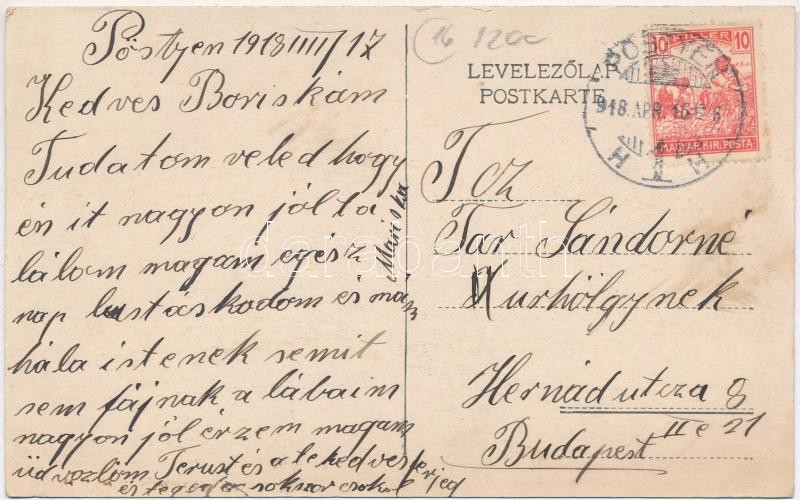 Pöstyen 1918 IIII/17
Kedves Boriskám
Tudatom veled hogy
én it nagyon jól ta
lálom magam egész
nap lustáskodom és már
hála istenek semit
sem fájnak a lábaim
nagyon jól érzem magam
üdvözlöm Terust és a te kedves férjed
és tegedet sokszor csokol
Mariska
16 1200
LEVELEZŐLAP
POSTKARTE
10 FILLÉR 10
MAGYAR KIR. POSTA
PÖSTYÉN
918 APR. 16
Tcz
Tar Sándorné
urhölgynek
Hernád utcza 8
II e 21
Budapest
darabanth